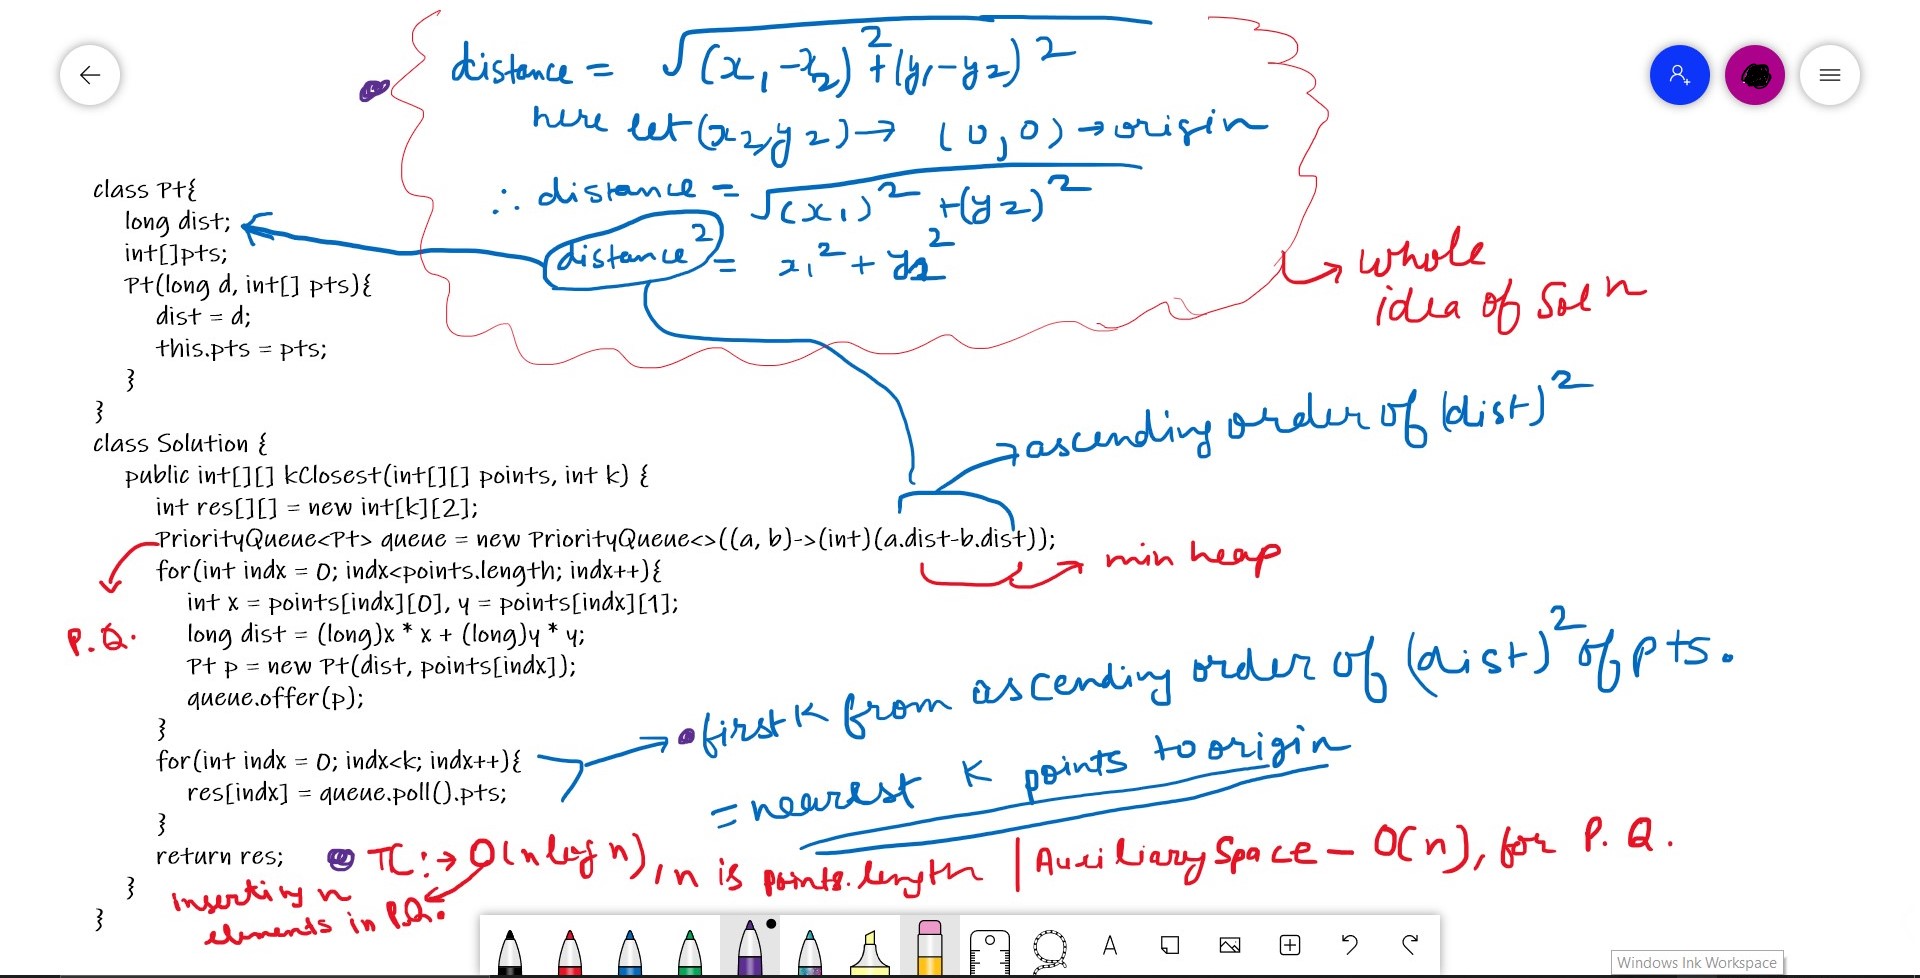 distance = √(x₁-x₂)² + (y₁-y₂)²
here let (x₂,y₂) → (0,0) → origin
∴ distance = √(x₁)² + (y₂)²
distance² = x₁² + y₂²
→ whole
idea of Soln
class Pt{
long dist;
int[]pts;
Pt(long d, int[] pts){
dist = d;
this.pts = pts;
}
}
class Solution {
public int[][] kClosest(int[][] points, int k) {
int res[][] = new int[k][2];
→ ascending order of (dist)²
PriorityQueue<Pt> queue = new PriorityQueue<>((a, b)->(int)(a.dist-b.dist));
→ min heap
P.Q.
for(int indx = 0; indx<points.length; indx++){
int x = points[indx][0], y = points[indx][1];
long dist = (long)x * x + (long)y * y;
Pt p = new Pt(dist, points[indx]);
queue.offer(p);
}
for(int indx = 0; indx<k; indx++){
res[indx] = queue.poll().pts;
}
return res;
}
}
first K from ascending order of (dist)² of pts.
= nearest K points to origin
TC:→ O(n log n), n is points.length | Auxiliary Space - O(n), for P.Q.
inserting n
elements in P.Q.
A
Windows Ink Workspace